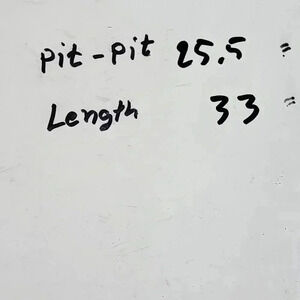 pit-pit 25.5 =
Length 33 =